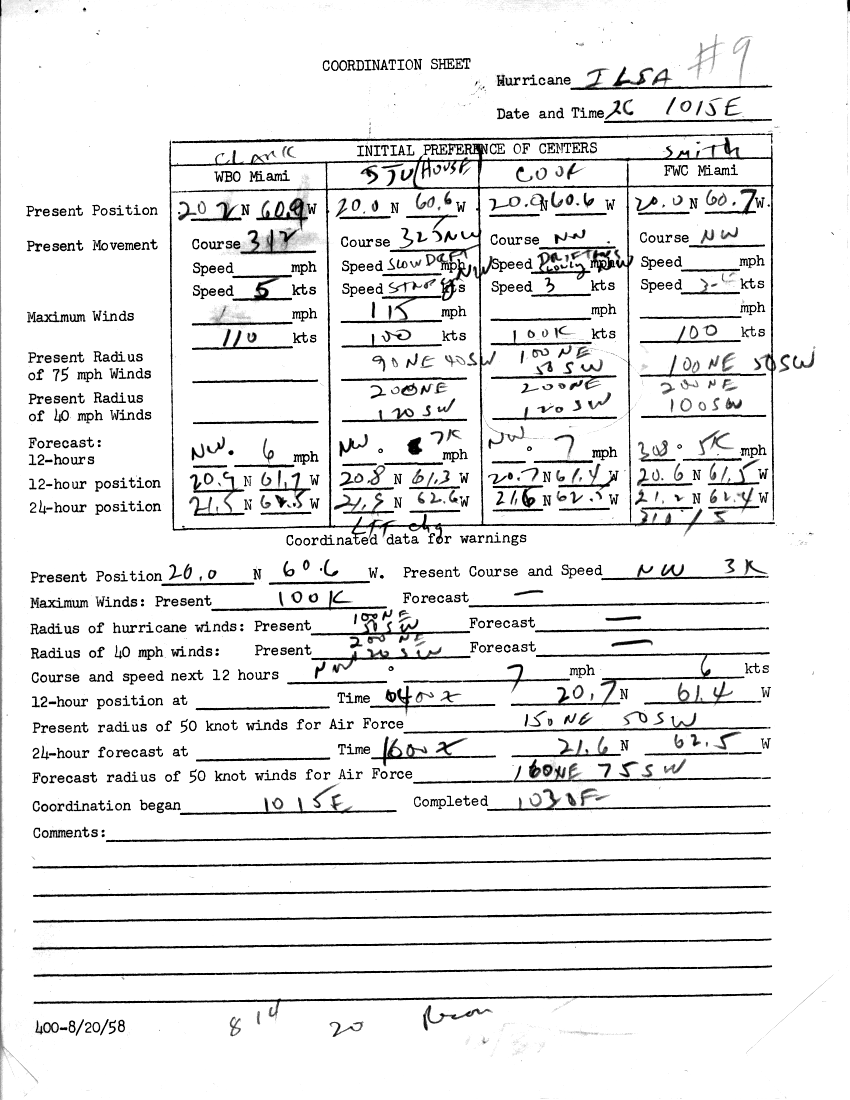 #9
COORDINATION SHEET
Hurricane ILSA
Date and Time 26 1015E
INITIAL PREFERENCE OF CENTERS
CLARK SJU/HOUSE COOK SMITH
WBO Miami FWC Miami
Present Position 20.2 N 60.9 W 20.0 N 60.6 W 20.0 N 60.6 W 20.0 N 60.7 W.
Present Movement Course 312 Course 325 NW Course NW Course NW
Speed mph Speed SLOW DRFT mph NW Speed DRIFTING SLOWLY mph NW Speed mph
Speed 5 kts Speed kts Speed 3 kts Speed kts
Maximum Winds mph 115 mph mph mph
110 kts 100 kts 100K kts 100 kts
Present Radius 90NE 40SW 100 NE
of 75 mph Winds 50 SW 100NE 50SW
Present Radius 200NE 200NE 200 NE
of 40 mph Winds 120 SW 120 SW 100SW
Forecast:
12-hours NW. 6 mph NW. 7K mph NW. 7 mph 308. 5K mph
12-hour position 20.9 N 61.7 W 20.8 N 61.3 W 20.7 N 61.4 W 20.6 N 61.5 W
24-hour position 21.5 N 62.5 W 21.5 N 62.6 W 21.6 N 62.5 W 21.2 N 62.4 W
310/5
Coordinated data for warnings
Present Position 20.0 N 60.6 W. Present Course and Speed NW 3K
Maximum Winds: Present 100K Forecast —
Radius of hurricane winds: Present 100NE 50SW Forecast —
Radius of 40 mph winds: Present 200 NE 120 SW Forecast —
Course and speed next 12 hours NW ° 7 mph 6 kts
12-hour position at Time 0400Z 20.7 N 61.4 W
Present radius of 50 knot winds for Air Force 150 NE 50SW
24-hour forecast at Time 1600Z 21.6 N 62.5 W
Forecast radius of 50 knot winds for Air Force 160NE 75SW
Coordination began 1015E Completed 1030E
Comments:
400-8/20/58
8 14 20 Recon